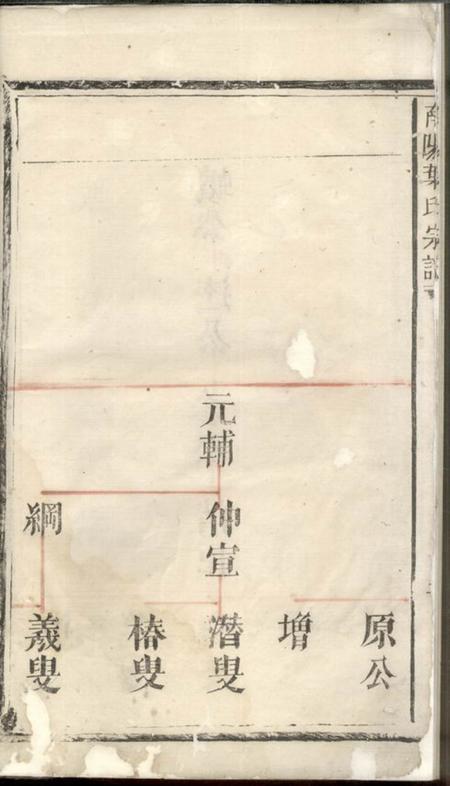 南陽葉氏宗譜
元輔
仲宣
綱
原公
增
潛叟
椿叟
羲叟